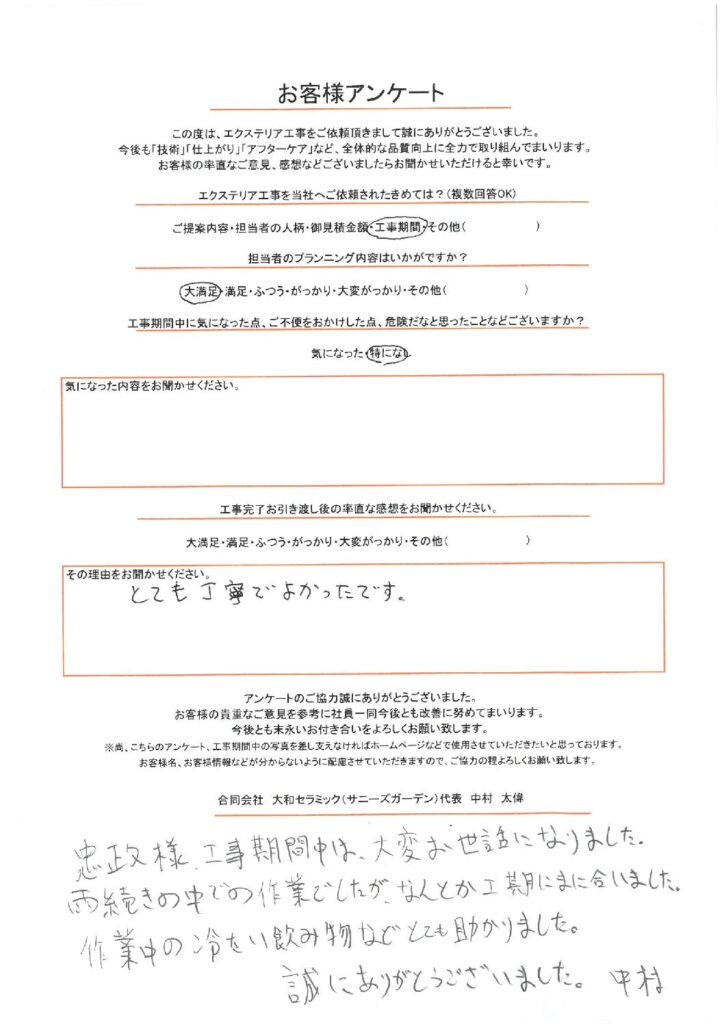 お客様アンケート
この度は、エクステリア工事をご依頼頂きまして誠にありがとうございました。
今後も「技術」「仕上がり」「アフターケア」など、全体的な品質向上に全力で取り組んでまいります。
お客様の率直なご意見、感想などございましたらお聞かせいただけると幸いです。
エクステリア工事を当社へご依頼されたきめては？（複数回答OK）
ご提案内容・担当者の人柄・御見積金額・工事期間・その他（　　　　　　　）
担当者のプランニング内容はいかがですか？
大満足・満足・ふつう・がっかり・大変がっかり・その他（　　　　　　　）
工事期間中に気になった点、ご不便をおかけした点、危険だなと思ったことなどございますか？
気になった・特になし
気になった内容をお聞かせください。
工事完了お引き渡し後の率直な感想をお聞かせください。
大満足・満足・ふつう・がっかり・大変がっかり・その他（　　　　　　　）
その理由をお聞かせください。
とても丁寧でよかったです。
アンケートのご協力誠にありがとうございました。
お客様の貴重なご意見を参考に社員一同今後とも改善に努めてまいります。
今後とも末永いお付き合いをよろしくお願い致します。
※尚、こちらのアンケート、工事期間中の写真を差し支えなければホームページなどで使用させていただきたいと思っております。
お客様名、お客様情報などが分からないように配慮させていただきますので、ご協力の程よろしくお願い致します。
合同会社　大和セラミック（サニーズガーデン）代表　中村　太偉
忠政様、工事期間中は、大変お世話になりました。
雨続きの中での作業でしたが、なんとか工期にまに合いました。
作業中の冷たい飲み物などとても助かりました。
誠にありがとうございました。　中村